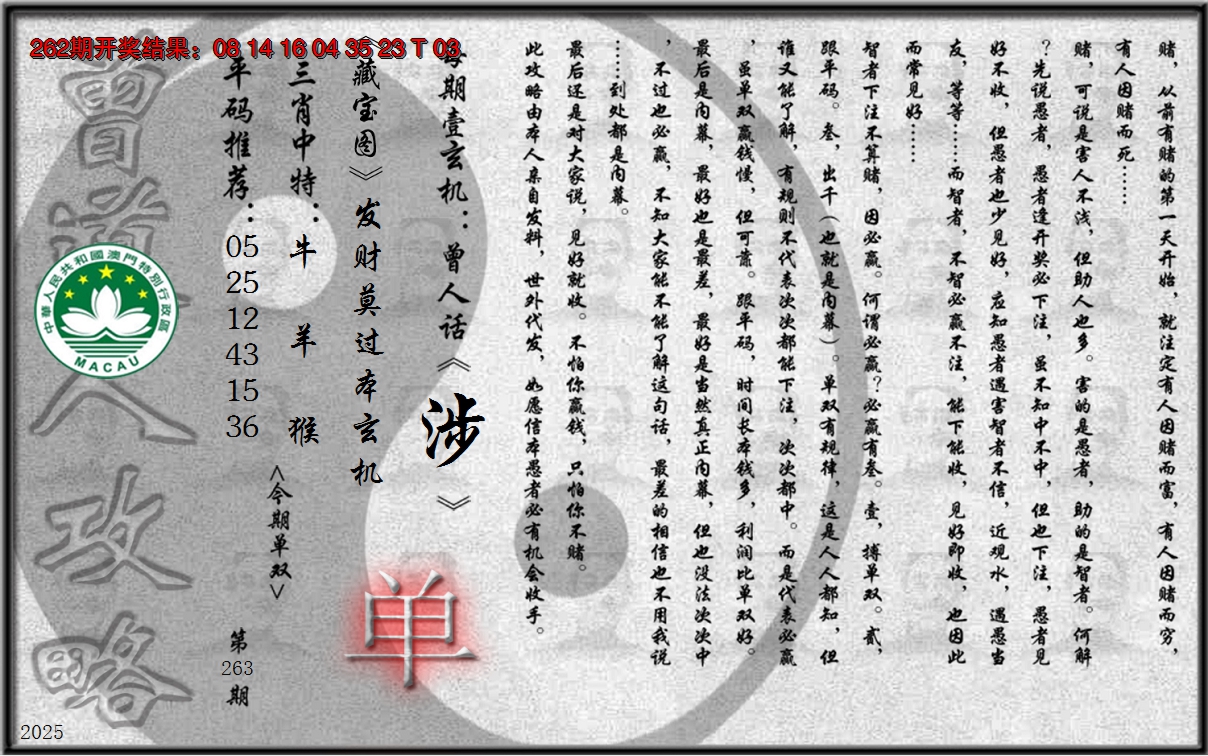 262期开奖结果：08 14 16 04 35 23 T 03
赌，从前有赌的第一天开始，就注定有人因赌而富，有人因赌而穷，
有人因赌而死……
赌，可说是害人不浅，但助人也多。害的是愚者，助的是智者。何解
？先说愚者，愚者逢开奖必下注，虽不知中不中，但也下注，愚者见
好不收，但愚者也少见好，应知愚者遇害智者不信，近观水，遇愚当
友，等等……而智者，不智必赢不注，能下能收，见好即收，也因此
而常见好……
智者下注不算赌，因必赢。何谓必赢？必赢有叁。壹，搏单双。贰，
跟平码。叁，出千（也就是内幕）。单双有规律，这是人人都知，但
谁又能了解，有规则不代表次次都能下注，次次都中。而是代表必赢
，虽单双赢钱慢，但可靠。跟平码，时间长本钱多，利润比单双好。
最后是内幕，最好也是最差，最好是当然真正内幕，但也没法次次中
，不过也必赢，不知大家能不能了解这句话，最差的相信也不用我说
……到处都是内幕。
最后还是对大家说，见好就收。不怕你赢钱，只怕你不赌。
此攻略由本人亲自发料，世外代发，如愿信本愚者必有机会收手。
每期壹玄机：曾人话《涉》
《藏宝图》发财莫过本玄机
单
三肖中特：牛 羊 猴
<今期单双>
平码推荐：05 25 12 43 15 36
第263期
曾道人攻略
中華人民共和國澳門特別行政區
MACAU
2025